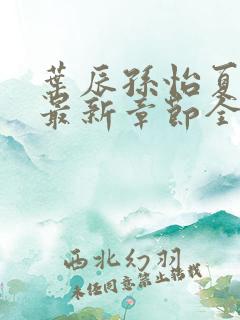 葉辰孫怡夏
最新章節全
西北幻羽
未任同意禁止轉載